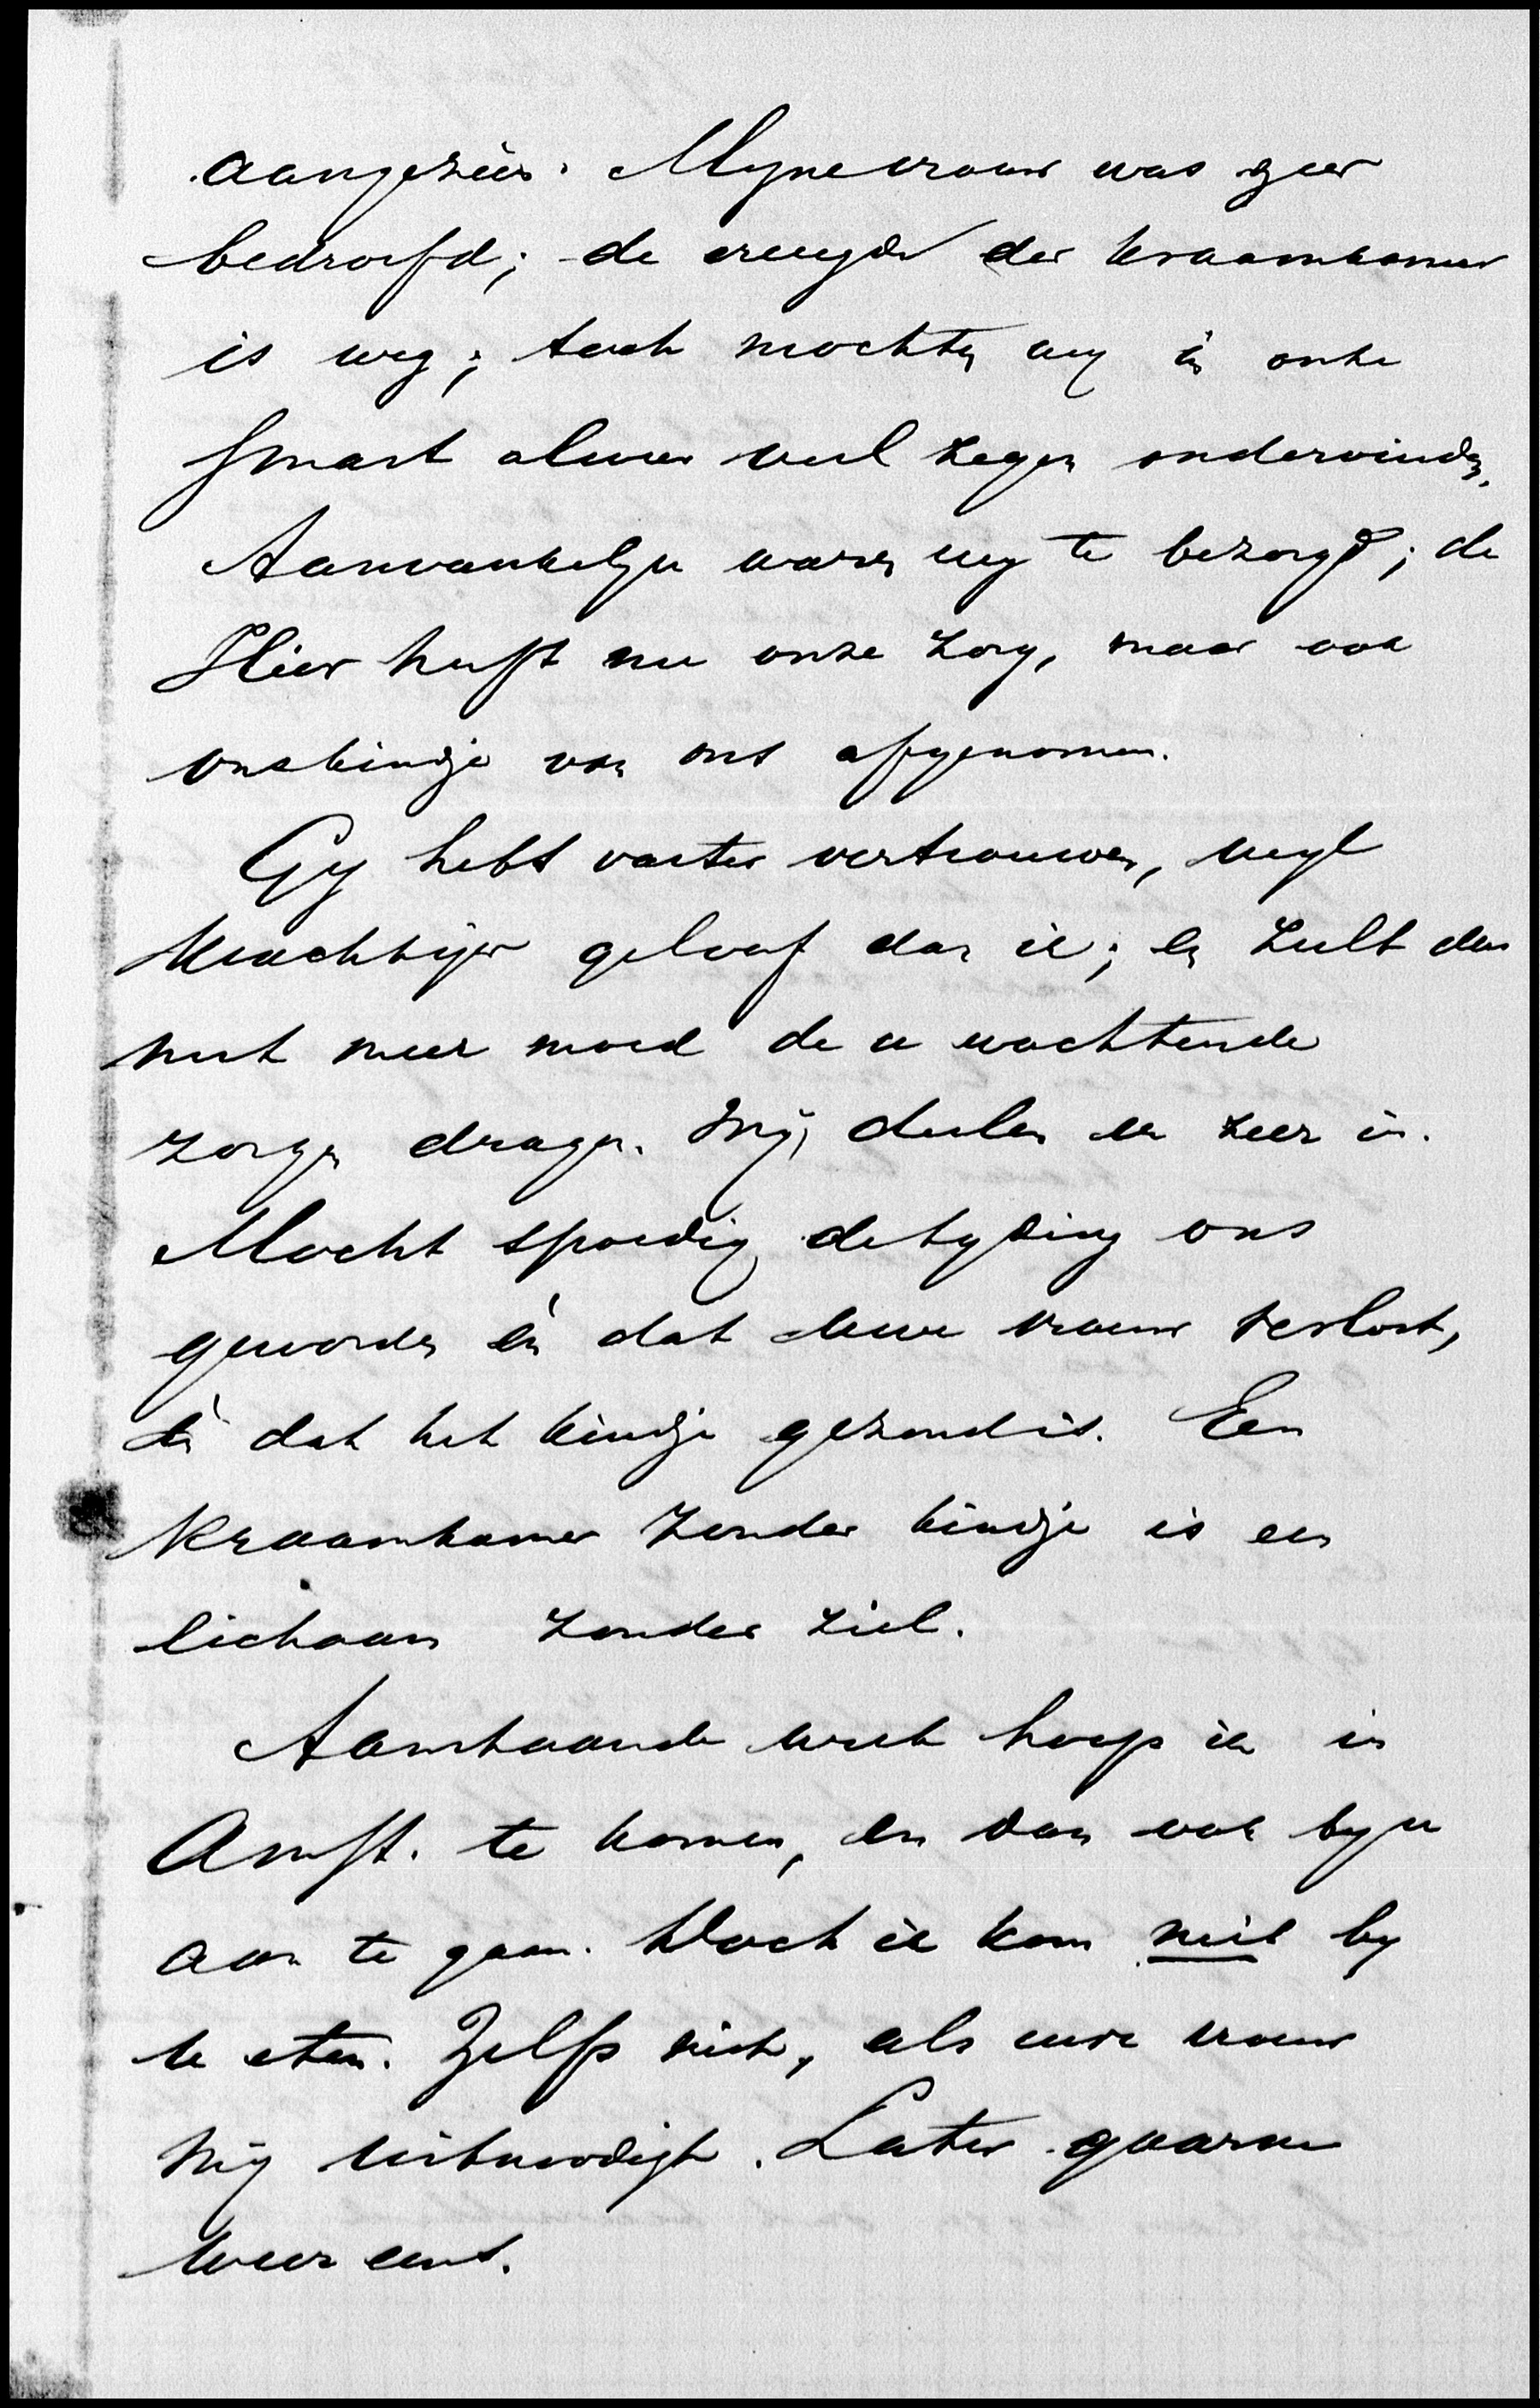 aangezien. Myne vrouw was zeer
bedroefd; de vreugde der kraamkamer
is weg; toch mochten wy in onze
smart alweer veel zegen ondervinden.
Aanvankelyk waren wy te bezorgd; de
Heer heeft nu onze zorg, maar ook
ons kindje van ons afgenomen.
Gy hebt vaster vertrouwen, wyl
krachtiger geloof dan ik; en zult dan
met meer moed de u wachtende
zorgen dragen. Wij deelen er zeer in.
Mocht spoedig de tyding ons
geworden èn dat uwe vrouw verlost,
èn dat het kindje gezond is. Een
Kraamkamer zonder kindje is een
lichaam zonder ziel.
Aanstaande week hoop ik in
Amst. te komen, en dan ook by u
aan te gaan. Doch ik kom niet by
u eten. Zelfs niet, als uwe vrouw
mij uitnoodigt. Later gaarne
weer eens.